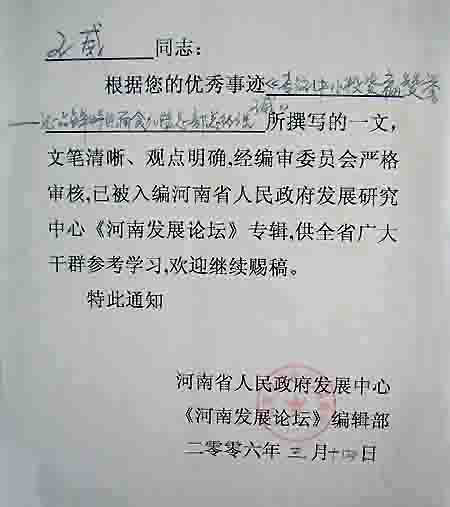 王威 同志：
根据您的优秀事迹《
——所撰写的一文，
文笔清晰、观点明确,经编审委员会严格
审核,已被入编河南省人民政府发展研究
中心《河南发展论坛》专辑,供全省广大
干群参考学习,欢迎继续赐稿。
特此通知
河南省人民政府发展中心
《河南发展论坛》编辑部
二零零六年 三 月 十四 日